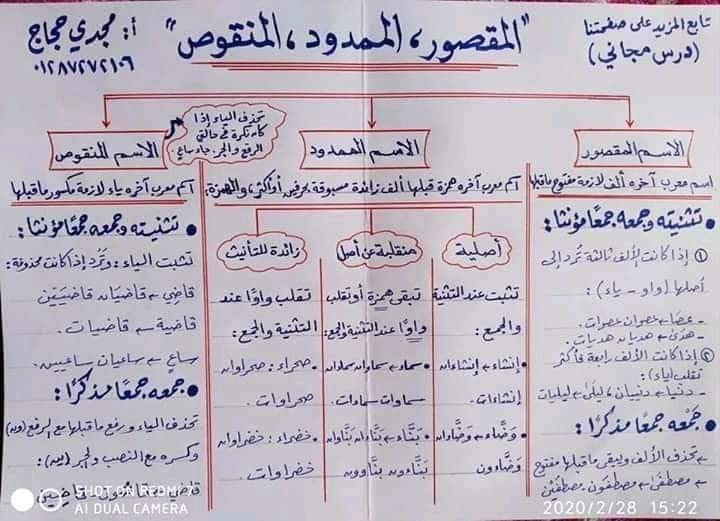 تابع المزيد على صفحتنا
(درس مجاني)
"المقصور، الممدود، المنقوص"
أ: مجدي حجاج
٠١٢٨٧٢٧٢١٠٦
الاسم المقصور
اسم معرب آخره ألف لازمة مفتوح ماقبلها
• تثنيته وجمعه جمعًا مؤنثا:
① إذا كانت الألف ثالثة تُرد إلى
أصلها (واو - ياء):
- عصا ← عصوان عصوات.
- هدى ← هديان هديات.
② إذا كانت الألف رابعة فأكثر
تقلب (ياء):
- دنيا ← دنييان، ليلى ← ليليات
• جمعه جمعًا مذكرًا:
← تحذف الألف ويبقى ماقبلها مفتوح
← مصطفى ← مصطفَون مصطفَيْن
الاسم الممدود
اسم معرب آخره همزة قبلها ألف زائدة مسبوقة بحرفين أو أكثر، والهمزة:
أصلية
تثبت عند التثنية
والجمع:
• إنشاء ← إنشاءان
إنشاءات.
• وَضَّاء ← وَضَّاءان
وَضَّاءون
منقلبة عن أصل
تبقى همزة أو تقلب
واوًا عند التثنية والجمع:
• سماء ← سماءان سماوان
سماوات سماءات.
• بنَّاء ← بَنَّاءان بَنَّاوان
بَنَّاءون بنَّاوون
زائدة للتأنيث
تقلب واوًا عند
التثنية والجمع:
• صحراء: صحراوان
صحراوات.
• خضراء: خضراوان
خضراوات.
تحذف الياء إذا
كان نكرة في حالتي
الرفع والجر. جاء ساعٍ.
الاسم المنقوص
اسم معرب آخره ياء لازمة مكسور ماقبلها
• تثنيته وجمعه جمعًا مؤنثا:
تثبت الياء: وتُرد إذا كانت محذوفة:
قاضِي ← قاضيَان قاضيَيَن
قاضية ← قاضيات.
ساعٍ ← ساعيان ساعيين.
• جمعه جمعًا مذكرًا:
تحذف الياء ورفع ماقبلها مع الرفع (ون)
وكسره مع النصب والجر (ين):
SHOT ON REDMI 7
AI DUAL CAMERA
2020/2/28 15:22